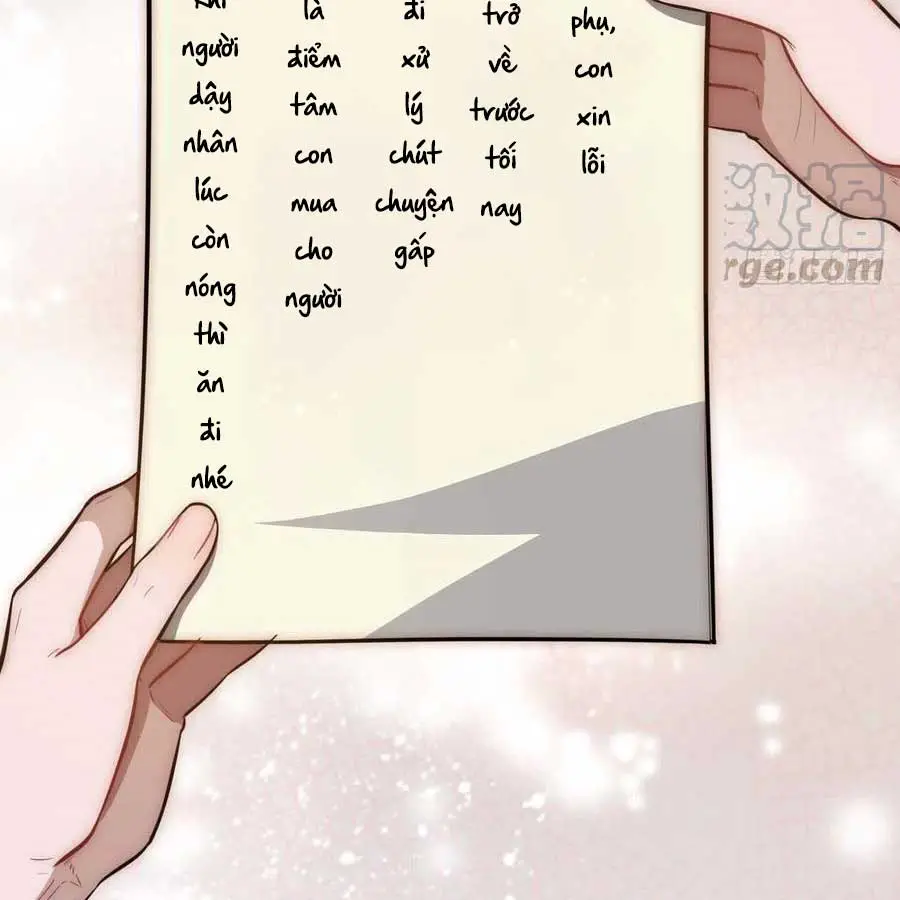 phụ, con xin lỗi
trở về trước tối nay
đi xử lý chút chuyện gấp
là điểm tâm con mua cho người
khi người dậy nhân lúc còn nóng thì ăn đi nhé
数据
rge.com